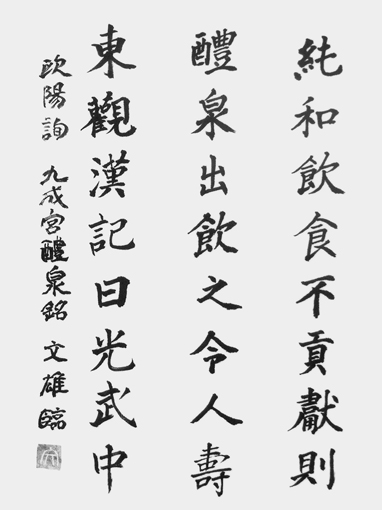 純和飲食不貢獻則
醴泉出飲之令人壽
東觀漢記曰光武中
歐陽詢 九成宮醴泉銘 文雄臨